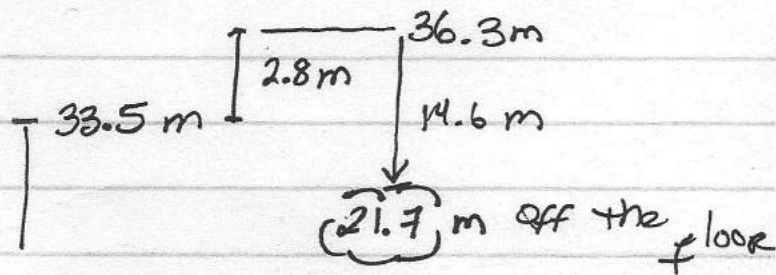 36.3m
2.8m
33.5 m
14.6 m
21.7 m off the floor